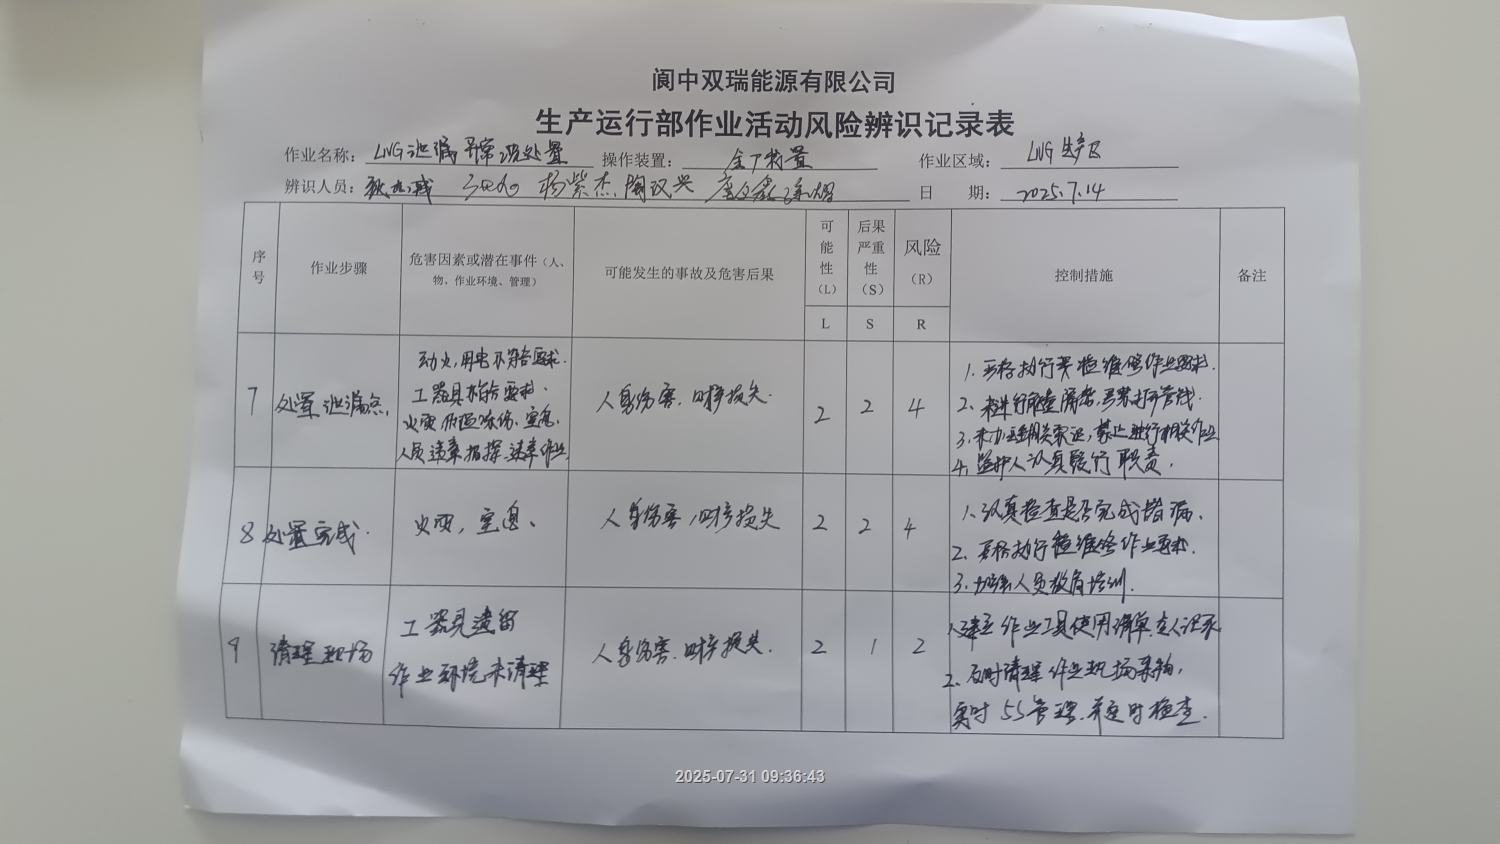 阆中双瑞能源有限公司
生产运行部作业活动风险辨识记录表
作业名称： LNG泄漏异常 处置 操作装置： 全厂装置 作业区域： LNG生产区
辨识人员： 杨紫杰 陶汉兴 日 期： 2025.7.14
序号 作业步骤 危害因素或潜在事件（人、物、作业环境、管理） 可能发生的事故及危害后果 可能性（L） 后果严重性（S） 风险（R） 控制措施 备注
L S R
7 处置泄漏点
动火,用电不符合要求.
工器具不符合要求.
火灾 低温冻伤、窒息.
人员违章指挥,违章作业
人身伤害、财产损失. 2 2 4
1. 严格执行 检维修作业要求.
2. 未进行 严禁打开管线.
3. 未办理相关票证,禁止进行相关作业
4. 监护人认真履行职责.
8 处置完成. 火灾,窒息、 人身伤害,财产损失 2 2 4
1. 认真检查是否完成堵漏、
2. 严格执行检维修作业要求.
3. 加强人员教育培训.
9 清理现场
工器具遗留
作业环境未清理
人身伤害.财产损失. 2 1 2
1.建立作业工具使用清单 专人记录
2. 及时清理作业现场杂物,
实时 5S管理. 定时检查.
2025-07-31 09:36:43